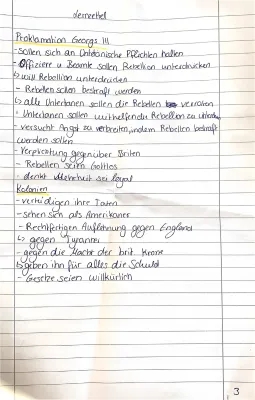 Lernzettel
Proklamation Georgs III
- sollen sich an Untertanische Pflichten halten
- Offiziere u Beamte sollen Rebellion unterdrücken
↳ will Rebellion unterdrücken
- Rebellen sollen bestraft werden
↳ alle Untertanen sollen die Rebellen verraten
- Untertanen sollen mithelfen Rebellion zu
- versucht Angst zu verbreiten, indem Rebellen bestraft
werden sollen
- Verpflichtung gegenüber Briten
- Rebellen seien Gottlos
- denkt Mehrheit sei loyal
Kolonien
- verteidigen ihre Taten
- sehen sich als Amerikaner
- Rechtfertigen Auflehnung gegen England
↳ gegen Tyrannei
- gegen die Macht der brit. Krone
↳ geben ihn für alles die Schuld
- Gesetze seien willkürlich
3